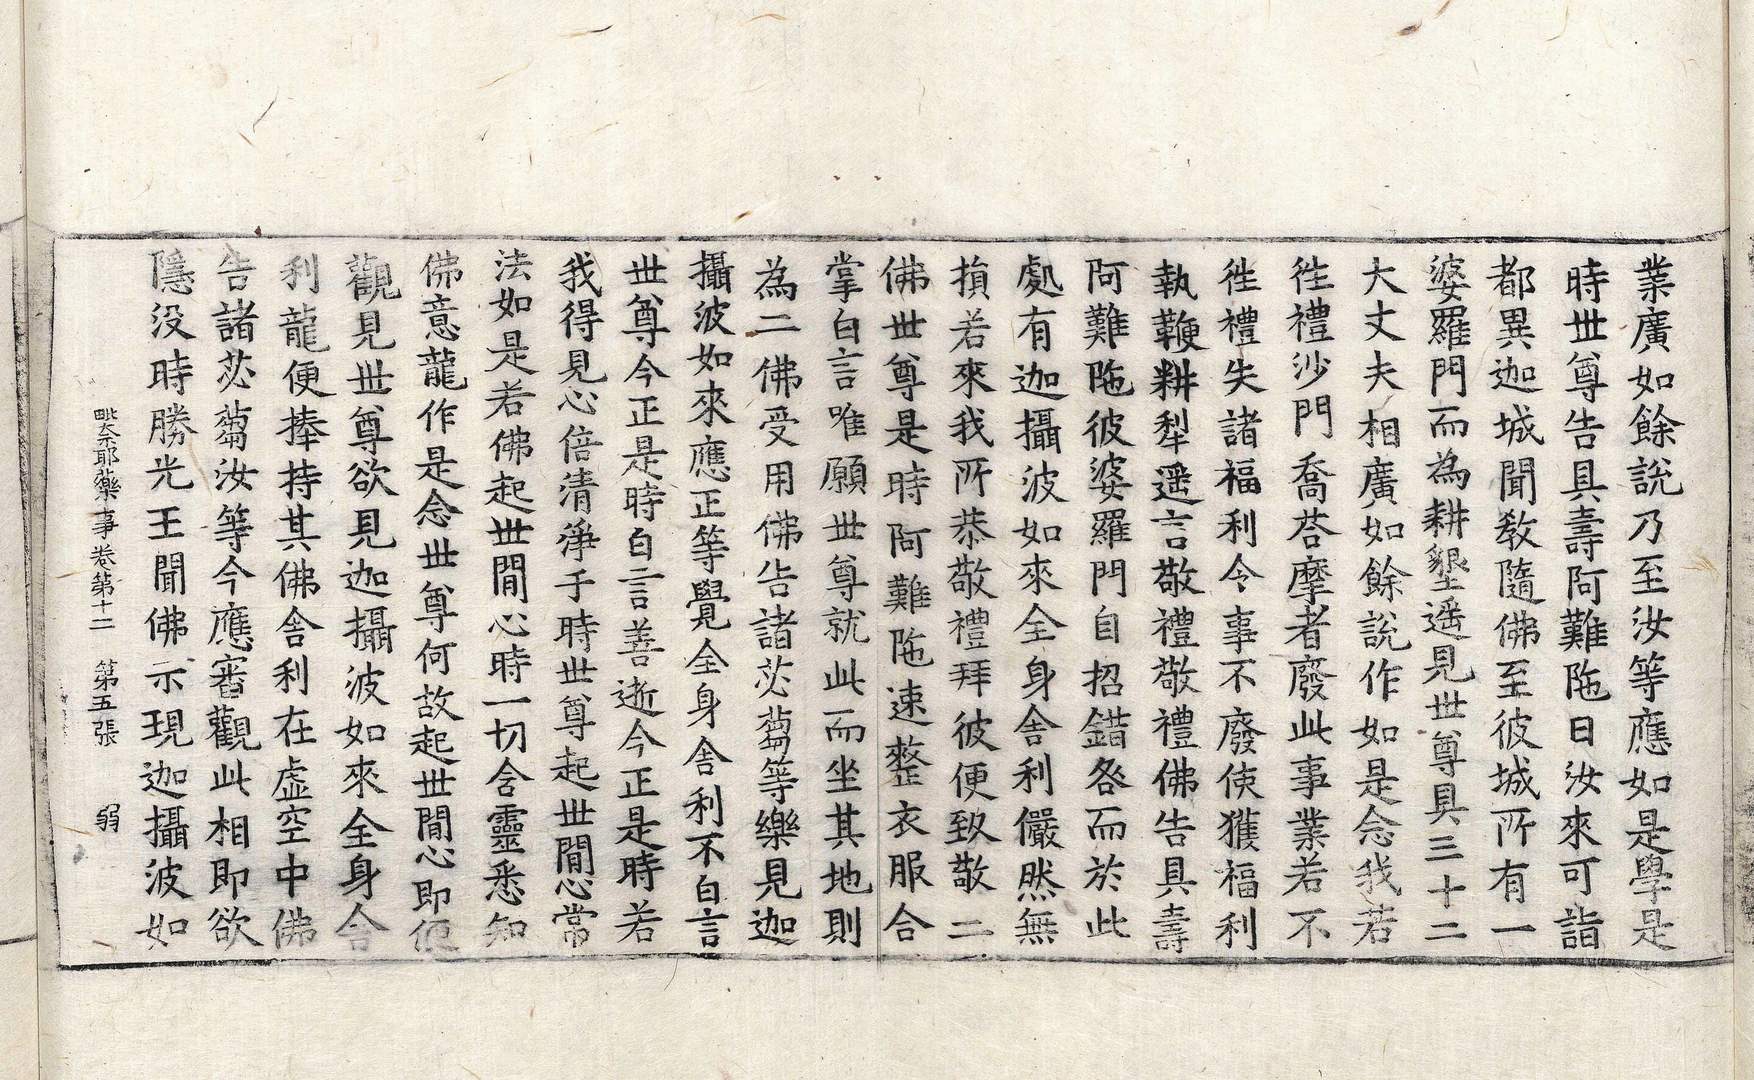 業廣如餘說乃至汝等應如是學是
時世尊告具壽阿難陁曰汝來可詣
都異迦城聞教隨佛至彼城所有一
婆羅門而為耕墾遥見世尊具三十二
大丈夫相廣如餘說作如是念我若
徃禮沙門喬荅摩者廢此事業若不
徃禮失諸福利今事不廢使獲福利
執鞭耕犁遥言敬禮敬禮佛告具壽
阿難陁彼婆羅門自招錯咎而於此
處有迦攝波如來全身舍利儼然無
損若來我所恭敬禮拜彼便致敬二
佛世尊是時阿難陁速整衣服合
掌白言唯願世尊就此而坐其地則
為二佛受用佛告諸苾蒭等樂見迦
攝波如來應正等覺全身舍利不白言
世尊今正是時白言善逝今正是時若
我得見心倍清淨于時世尊起世間心常
法如是若佛起世間心時一切含靈悉知
佛意龍作是念世尊何故起世間心即便
觀見世尊欲見迦攝波如來全身舍
利龍便捧持其佛舍利在虛空中佛
告諸苾蒭汝等今應審觀此相即欲
隱没時勝光王聞佛示現迦攝波如
毗奈耶藥事卷第十二 第五張 弱